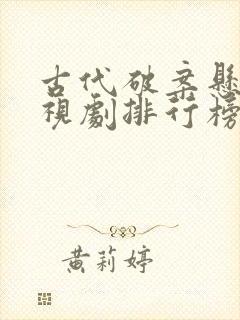 古代破案懸
視劇排行榜
黃莉婷